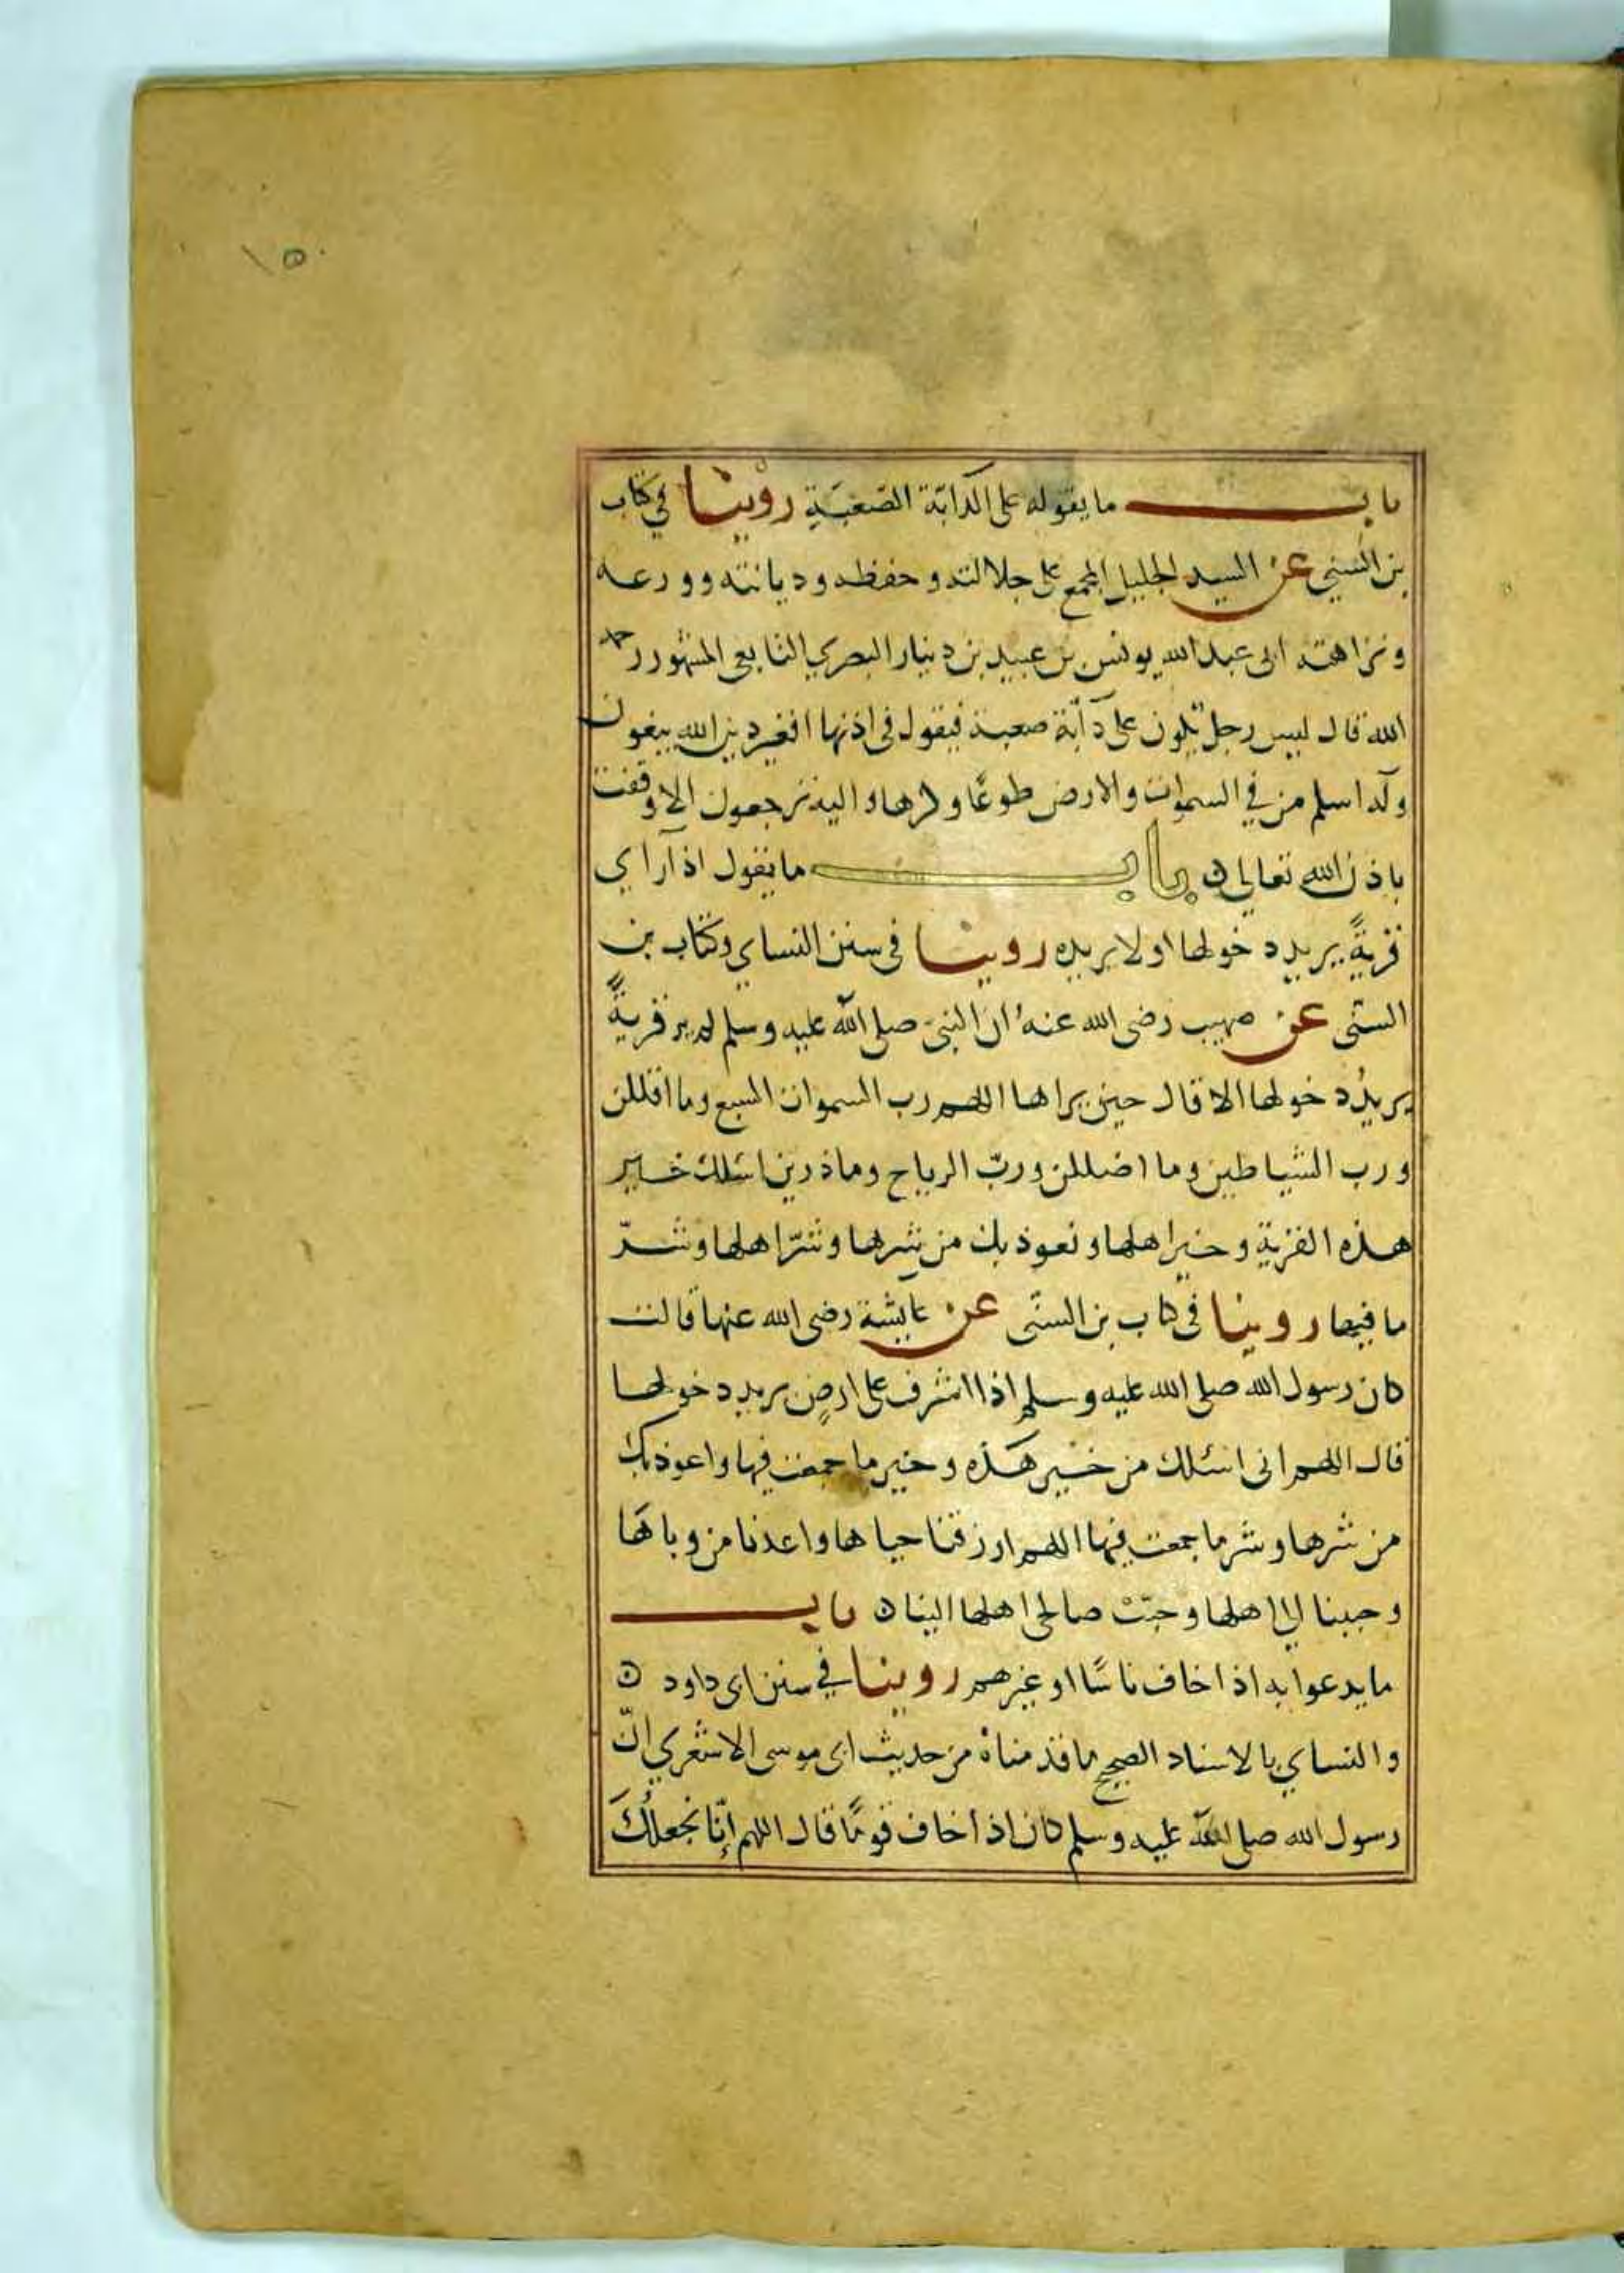 ١٥٠
باب ما يقوله على الدابّة الصّعبَةِ رويْنا في كتاب
بن السني عن السيد الجليل المجمع على جلالته وحفظه وديانته وورعه
ونزاهته ابى عبد الله يونس بن عبيد بن دينار البصري التابعى المشهور رحمه
الله قال ليس رجل يكون على دآبّة صعبة فيقول فى اذنها افغير دين الله يبغون
ولَه اسلم من في السموات والارض طوعًا وكرها واليه ترجعون الا وقفت
باذن الله تعالى ه باب ما يقول اذا راي
قريةً يريد دخولها او لا يريده روينا فى سنن النساي وكتاب بن
السنّى عن صهيب رضى الله عنهُ ان النبى صلى الله عليه وسلم لم ير قريةً
يريدُ دخولها الا قال حين يراها اللهم رب السموات السبع وما اقللن
ورب الشياطين وما اضللن وربّ الرياح وما ذرين اسئلك خير
هذه القرية وخير اهلها ونعوذ بك من شرها وشرّ اهلها وشرّ
ما فيها روينا فى كتاب بن السنّى عن عايشة رضى الله عنها قالت
كان رسول الله صلى الله عليه وسلم اذا اشرف على ارضٍ يريد دخولها
قال اللهم انى اسئلك من خير هَذه وخير ما جمعت فيها واعوذ بك
من شرها وشر ما جمعت فيها اللهم ارزقنا حياها واعذنا من وباهَا
وحببنا الى اهلها وحبّبْ صالحى اهلها الينا ه باب
ما يدعوا به اذا خاف ناسًا او غيرهم روينا في سنن ابى داود ه
والنساي بالاسناد الصحيح ما قدمناهُ من حديث ابى موسى الاشعري انّ
رسول الله صلى الله عليه وسلم كان اذا خاف قومًا قال اللهم إنّا نجعلُكَ